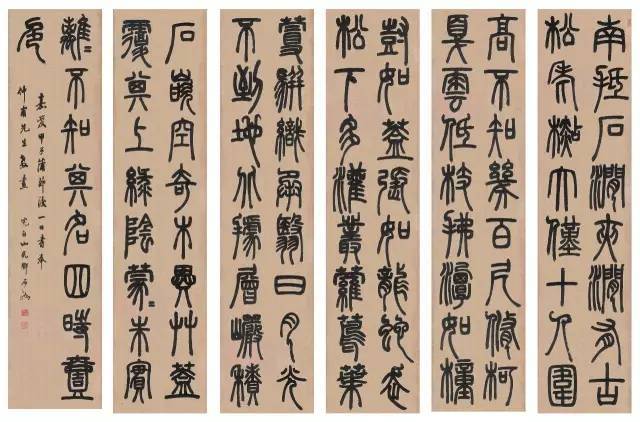 南抵石澗夾澗有古
松老杉大僅十人圍
高不知幾百尺脩柯
戛雲低枝拂潭如幢
尌如蓋張如龍蛇走
松下多灌叢蘿蔦葉
蔓駢織承翳日月光
不到地北據層巖積
石嵌空奇木異艸蓋
覆其上綠陰蒙〻朱實
離〻不知其名四時壹
色
嘉慶甲子蒲節後一日書奉
仲甫先生教
完白山民鄧石如